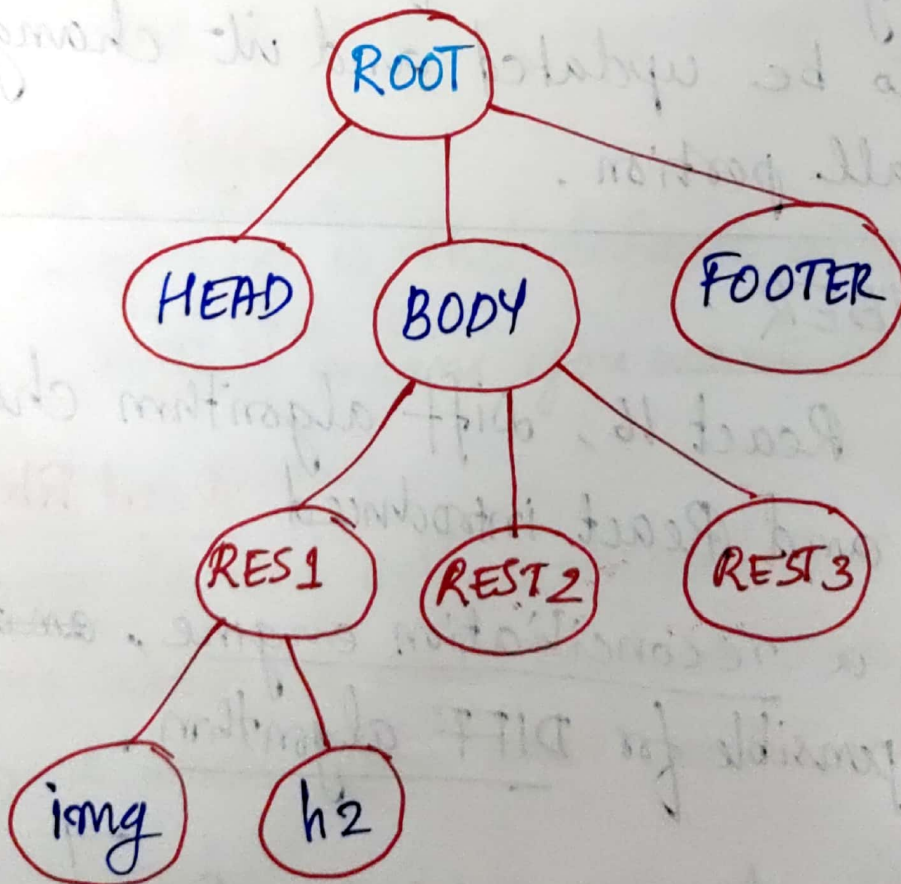 ROOT
HEAD BODY FOOTER
RES1 REST2 REST3
img h2